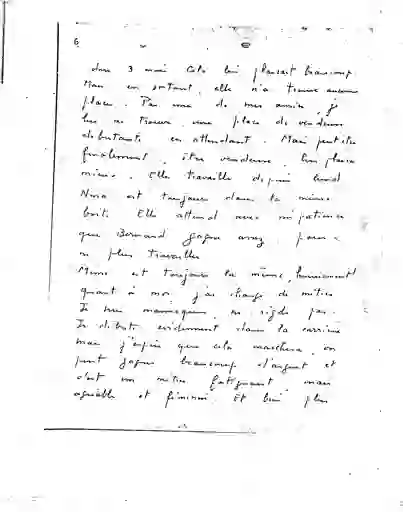 6
dans 3 mois Cela lui plaisait beaucoup.
Mais en sortant, elle n'a trouvé aucune
place. Par une de mes amies, je
lui ai trouvé une place de vendeuse
débutante en attendant. Mais peut être
finalement, être vendeuse, lui plaira
mieux. Elle travaille depuis lundi
Nora est toujours dans la même
boite. Elle attend avec impatience
que Bernard gagne assez pour
ne plus travailler
Mimi est toujours la même, heureusement
quant à moi, j'ai changé de métier
Je suis mannequin, ne rigole pas.
Je débute évidemment dans la carrière
mais j'espère que cela marchera, on
peut gagner beaucoup d'argent et
c'est un métier fatiguant mais
agréable et féminin. Et bien plus